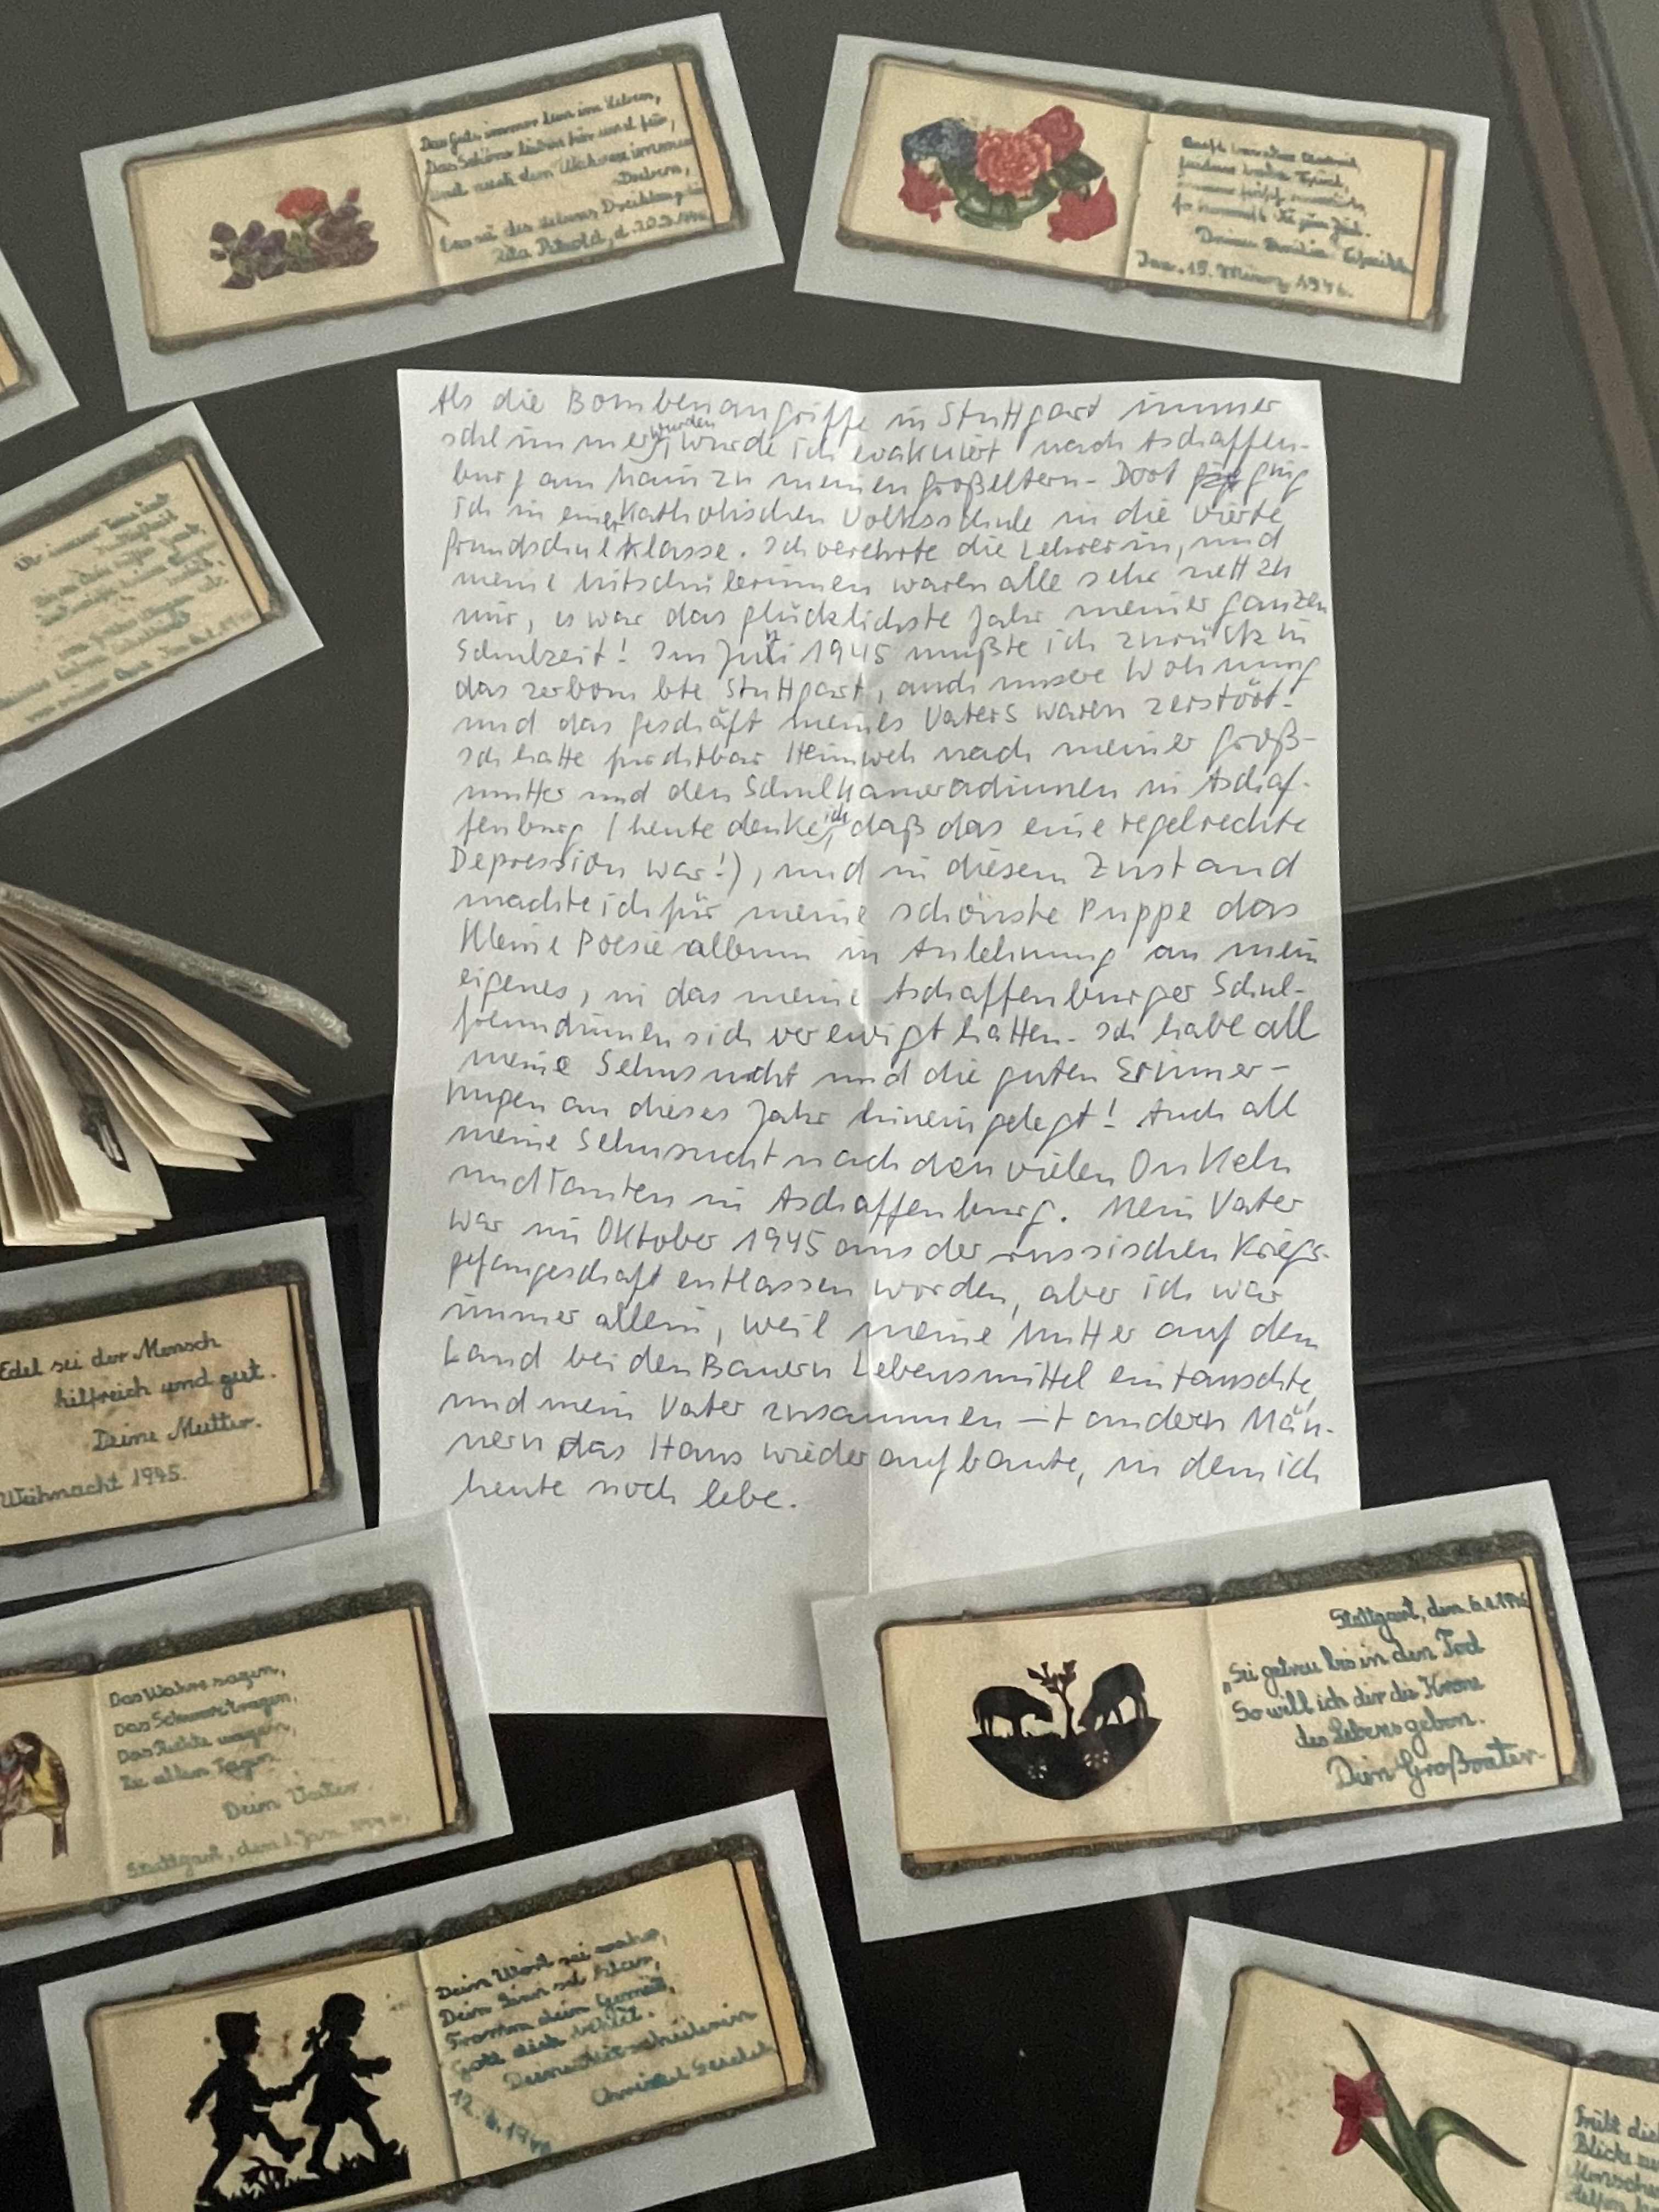 Das Gute immer tun im Leben,
Das Schöne lieben für und für,
Und nach dem Wahren immer
Streben,
Das sei des Lebens
Rita
d. 20.3.1946
Deine
Den 15. März 1946.
Als die Bombenangriffe in Stuttgart immer
schlimmer wurden, wurde ich evakuiert nach Aschaffen-
burg am Main zu meinen Großeltern. Dort ging
ich in einer Katholischen Volksschule in die vierte
Grundschulklasse. Ich verehrte die Lehrerin, und
meine Mitschülerinnen waren alle sehr nett zu
mir, es war das glücklichste Jahr meiner ganzen
Schulzeit! Im Juni 1945 mußte ich zurück in
das zerbombte Stuttgart, auch unsere Wohnung
und das Geschäft meines Vaters waren zerstört.
Ich hatte furchtbar Heimweh nach meiner Groß-
mutter und den Schulkameradinnen in Aschaf-
fenburg (heute denke ich, daß das eine regelrechte
Depression war!), und in diesem Zustand
machte ich für meine schönste Puppe das
kleine Poesiealbum in Anlehnung an mein
eigenes, in das meine Aschaffenburger Schul-
freundinnen sich verewigt hatten. Ich habe all
meine Sehnsucht und die guten Erinner-
ungen an dieses Jahr hineingelegt! Auch all
meine Sehnsucht nach den vielen Onkeln
und Tanten in Aschaffenburg. Mein Vater
war im Oktober 1945 aus der russischen Kriegs-
gefangeschaft entlassen worden, aber ich war
immer allein, weil meine Mutter auf dem
Land bei den Bauern Lebensmittel eintauschte,
und mein Vater zusammen mit andern Män-
nern das Haus wieder aufbaute, in dem ich
heute noch lebe.
Edel sei der Mensch
hilfreich und gut.
Deine Mutter.
Weihnacht 1945.
Das Wahre sagen,
Das Schwere tragen,
Das Rechte wagen,
Zu allen Tagen.
Dein Vater.
Stuttgart, den 1. Jan.
Stuttgart, den 6.1.1946
„Sei getreu bis in den Tod
So will ich dir die Krone
des Lebens geben.
Dein Großvater.
Dein Wort sei wahr,
Dein Sinn sei klar,
Fromm dein Gemüt,
Gott dich behüt.
Deine Mitschülerin
Christel Seidel